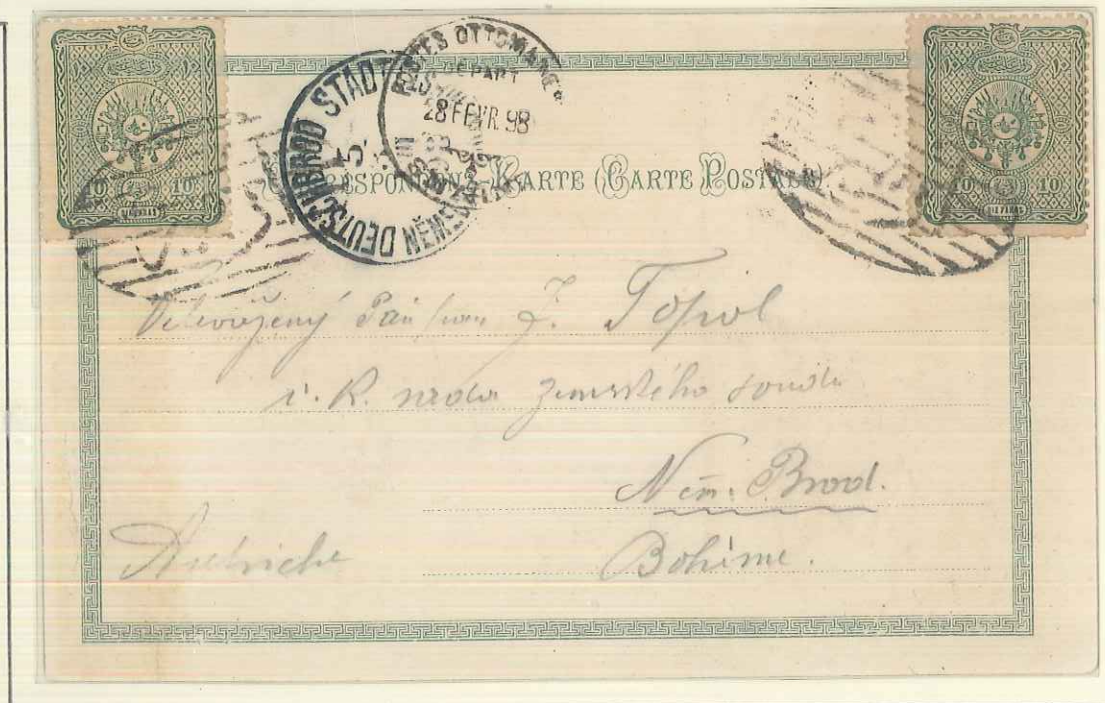 10 10
POSTES OTTOMANES
DEPART
28 FEVR. 98
DEUTSCHBROD STADT
5
98
CORRESPONDENZ-KARTE (CARTE POSTALE)
10 10
DIX PARAS
Pán pan J. Topol
c. k. rada zemského soudu
Něm. Brod.
Autriche Bohême.